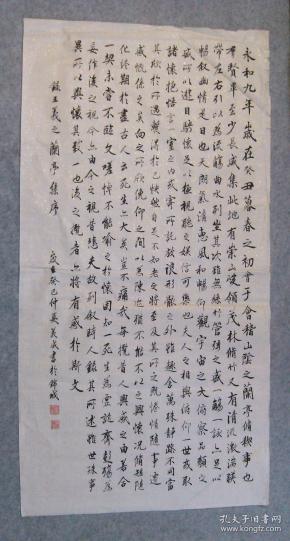 永和九年歲在癸丑暮春之初會于會稽山陰之蘭亭脩稧事也
羣賢畢至少長咸集此地有崇山峻領茂林脩竹又有清流激湍暎
帶左右引以為流觴曲水列坐其次雖無絲竹管弦之盛一觴一詠亦足以
暢叙幽情是日也天朗氣清惠風和暢仰觀宇宙之大俯察品類之
盛所以遊目騁懷足以極視聽之娛信可樂也夫人之相與俯仰一世或取
諸懷抱悟言一室之內或寄所託放浪形骸之外雖趣舍萬殊靜躁不同當
其欣於所遇蹔得於己快然自足不知老之將至及其所之既倦情隨事遷
感慨係之矣向之所欣俛仰之間以為陳迹猶不能不以之興懷況脩短隨
化終期於盡古人云死生亦大矣豈不痛哉每攬昔人興感之由若合
一契未嘗不臨文嗟悼不能喻之於懷固知一死生為虛誕齊彭殤為
妄作後之視今亦由今之視昔悲夫故列叙時人錄其所述雖世殊事
異所以興懷其致一也後之攬者亦將有感於斯文
錄王羲之蘭亭集序
孔夫子旧书网